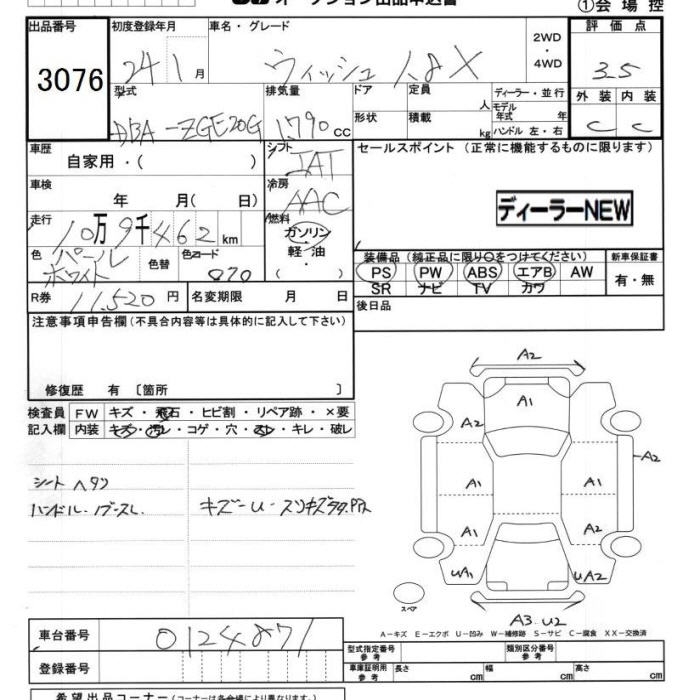 オークション出品申込書
①会場控
出品番号
3076
初度登録年月
24 1月
車名・グレード
ウィッシュ 1.8X
2WD
・
4WD
評価点
3.5
型式
DBA-ZGE20G
排気量
1790cc
ドア
定員
人
形状
積載
kg
ディーラー・並行
モデル年式
年
ハンドル 左・右
外装
内装
C
C
車歴
自家用・( )
シフト
IAT
セールスポイント (正常に機能するものに限ります)
車検
年 月( 日)
冷房
AAC
ディーラーNEW
走行
10万9千462km
燃料
ガソリン
軽油
( ・ )
色
パール
ホワイト
色替
色コード
070
装備品(純正品に限り○をつけてください)
PS PW ABS エアB AW
SR ナビ TV カワ
新車保証書
有・無
R券
11,520円
名変期限 月 日
後日品
注意事項申告欄(不具合内容等は具体的に記入して下さい)
修復歴 有 〔箇所 〕
検査員
記入欄
FW キズ・飛石・ヒビ割・リペア跡・×要
内装 キズ・汚レ・コゲ・穴・スレ・キレ・破レ
シートヘタリ
キズ-U-スリキズ
A2
A1
A2
A2
A1
A1
A1
A2
UA1
UA2
スペア
A3 U2
A-キズ E-エクボ U-凹み W-補修跡 S-サビ C-腐食 XX-交換済
車台番号
0124871
登録番号
型式指定番号
参考
類別区分番号
参考
車庫証明用
参考
長さ
cm
幅
cm
高さ
cm
希望出品コーナー(コーナーは各会場により異なります。)